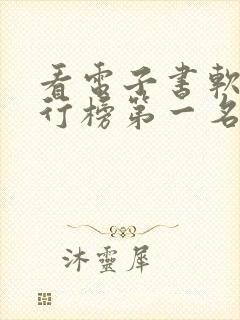 看電子書軟
行榜第一名
沐靈犀